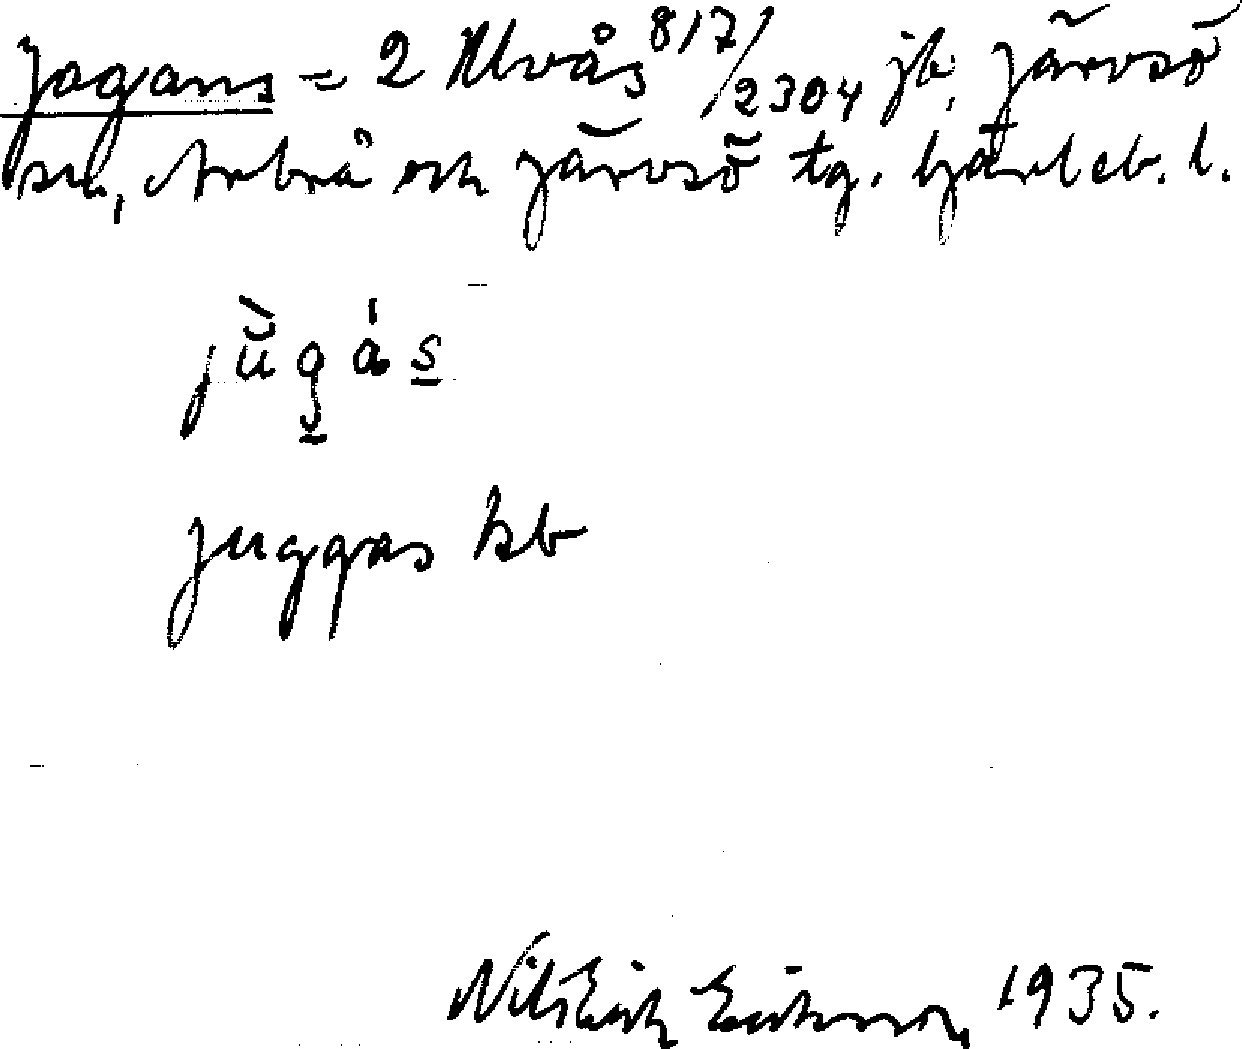 Jogans = 2 Ulvås 817/2304 jb, Järvsö
sn, Arbrå och Järvsö tg. Gävleb. l.
jùgás
Juggas kb
Nils Erik Eriksson, 1935.